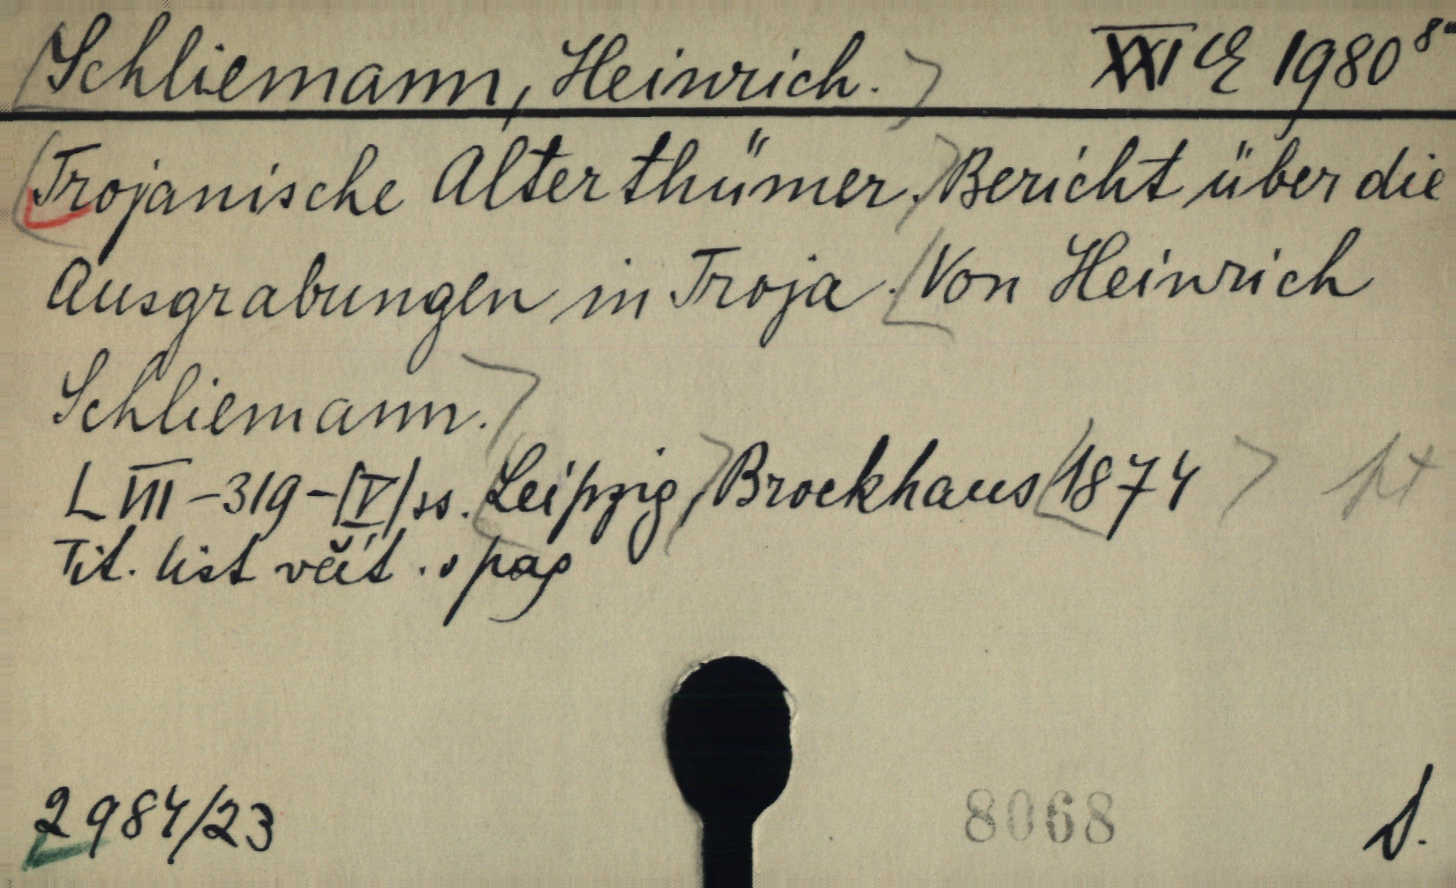 Schliemann, Heinrich. XXI E 1980 8°
Trojanische Alterthümer. Bericht über die
Ausgrabungen in Troja. Von Heinrich
Schliemann.
LVIII-319-[V] ss. Leipzig, Brockhaus 1874
Tit. list včít. v pag
2984/23 8068 S.